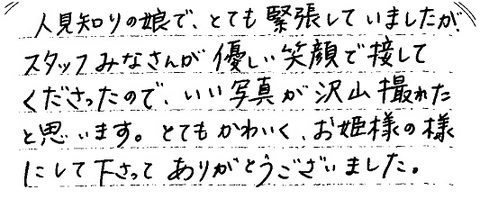 人見知りの娘で、とても緊張していましたが、
スタッフみなさんが優しい笑顔で接して
くださったので、いい写真が沢山撮れた
と思います。とてもかわいく、お姫様の様
にして下さって ありがとうございました。